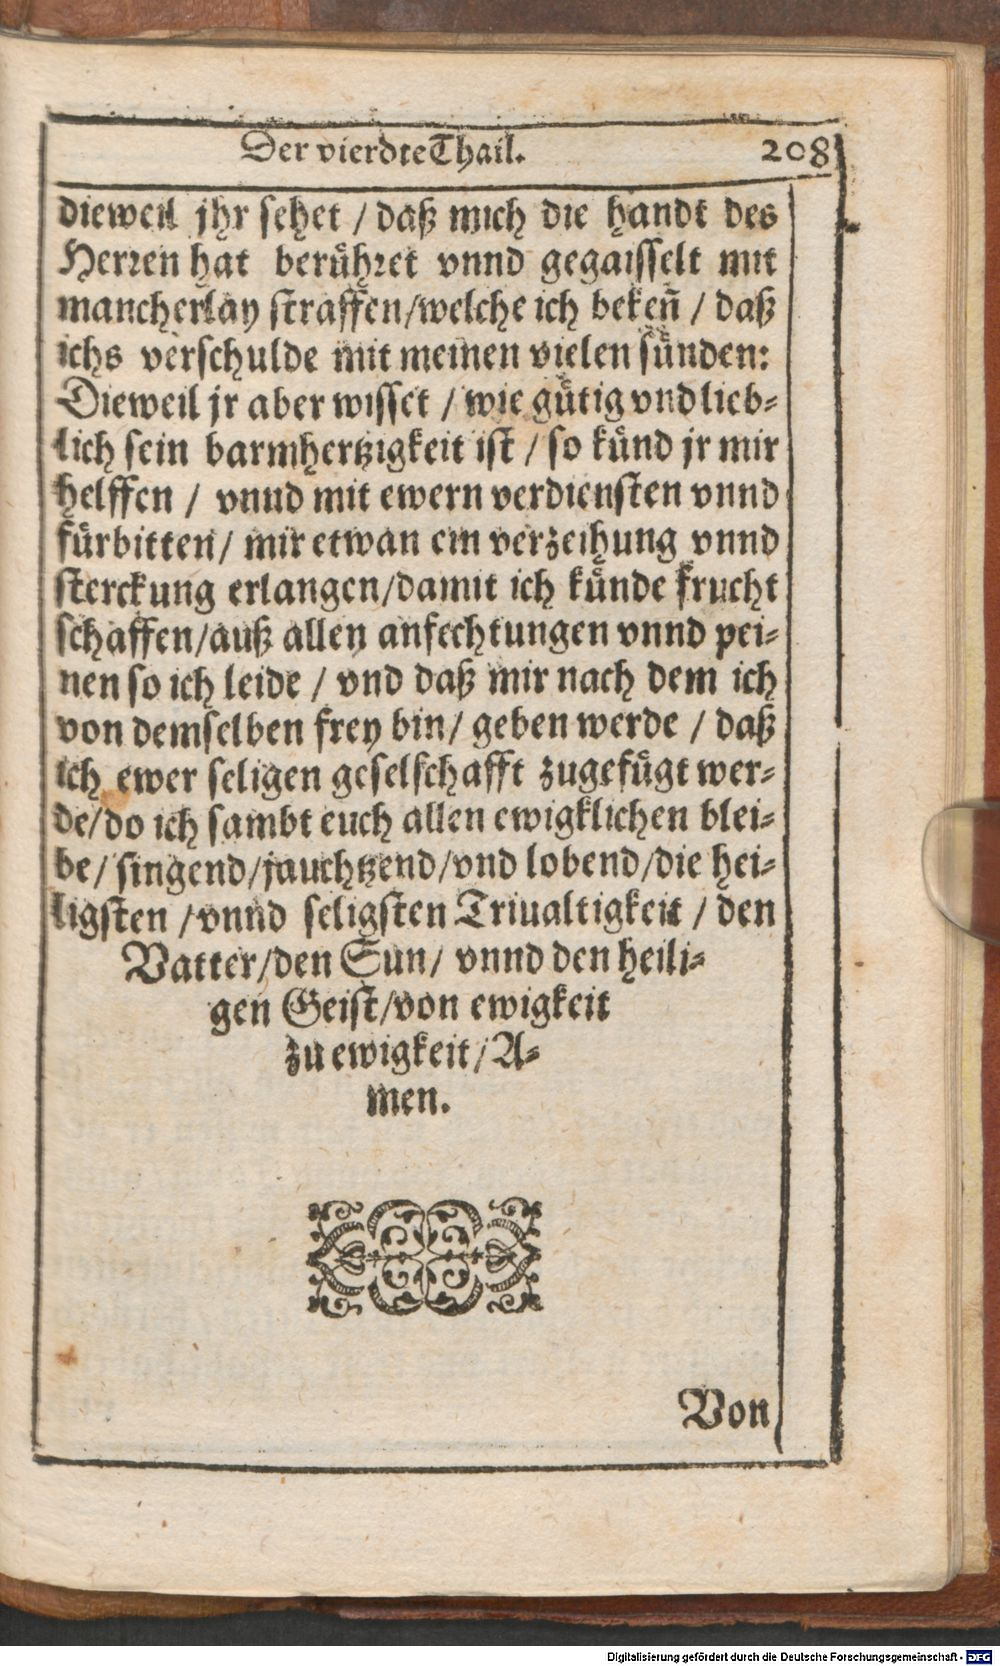 Der vierdte Thail. 208
dieweil jhr sehet / daß mich die handt des
Herren hat berühret vnnd gegaisselt mit
mancherlay straffen/welche ich bekeñ / daß
ichs verschulde mit meinen vielen sünden:
Dieweil jr aber wisset / wie gütig vnd lieb-
lich sein barmhertzigkeit ist / so künd jr mir
helffen / vnnd mit ewern verdiensten vnnd
fürbitten/ mir etwan ein verzeihung vnnd
sterckung erlangen/damit ich künde frucht
schaffen/auß allen anfechtungen vnnd pei-
nen so ich leide / vnd daß mir nach dem ich
von demselben frey bin/ geben werde / daß
ich ewer seligen geselschafft zugefügt wer-
de/do ich sambt euch allen ewigklichen blei-
be/ singend/jauchtzend/vnd lobend/die hei-
ligsten /vnnd seligsten Triualtigkeit / den
Vatter/den Sun/ vnnd den heili-
gen Geist/von ewigkeit
zu ewigkeit/ A-
men.
Von
Digitalisierung gefördert durch die Deutsche Forschungsgemeinschaft - DFG